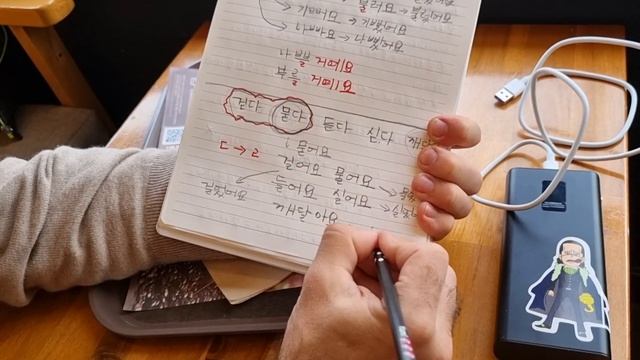 불러요 → 불렀어요
→ 기뻐요 → 기뻤어요
→ 나빠요 → 나빴어요
나쁠 거예요
부를 거예요
걷다 묻다 듣다 싣다
ㄷ → ㄹ ↓ 물어요
걸어요 물어요 →
걸었어요 들어요 실어요 →
깨달아요